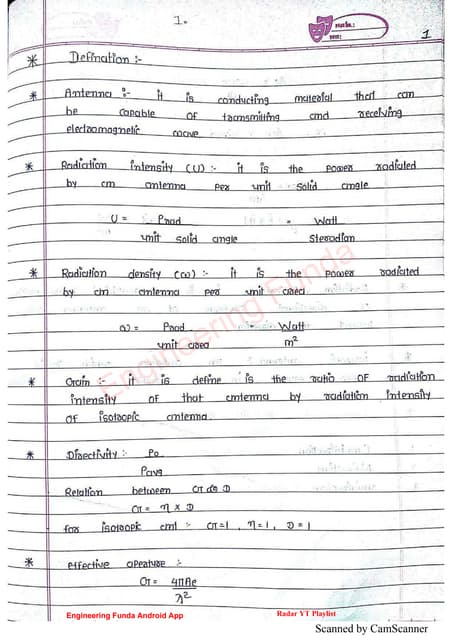 1.
1
* Defination :-
* Antenna :- it is conducting material that can
be capable of transmitting and receiving
electromagnetic wave
* Radiation intensity (U) :- it is the power radiated
by an antenna per unit solid angle
U = Prad = Watt
unit solid angle Steradian
* Radiation density (ω) :- it is the power radiated
by an antenna per unit area
ω = Prad = Watt
unit area m²
* Gain :- it is define is the ratio of radiation
intensity of that antenna by radiation intensity
of isotropic antenna
* Directivity :- Po
Pavg
Relation between G & D
G = η x D
for isotropic ant :- G=1, η=1, D=1
* effective aperture :-
G = 4πAe
λ²
Engineering Funda
Engineering Funda Android App Radar YT Playlist
Scanned by CamScanner